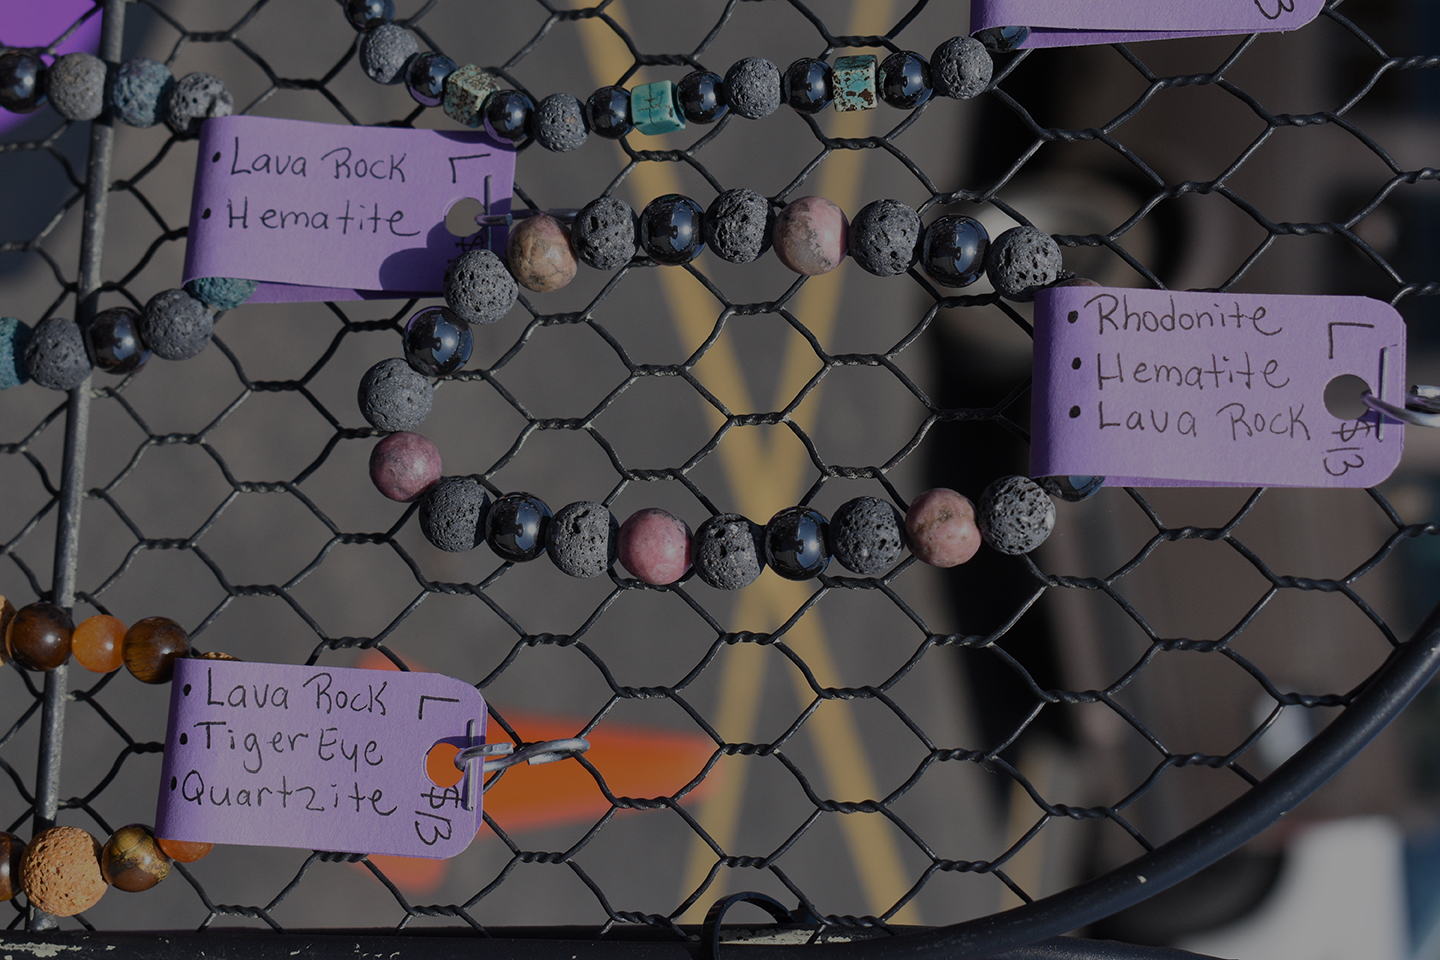 • Lava Rock
• Hematite
L
• Rhodonite
• Hematite
• Lava Rock
L
$13
• Lava Rock
• Tiger Eye
• Quartzite
L
$13